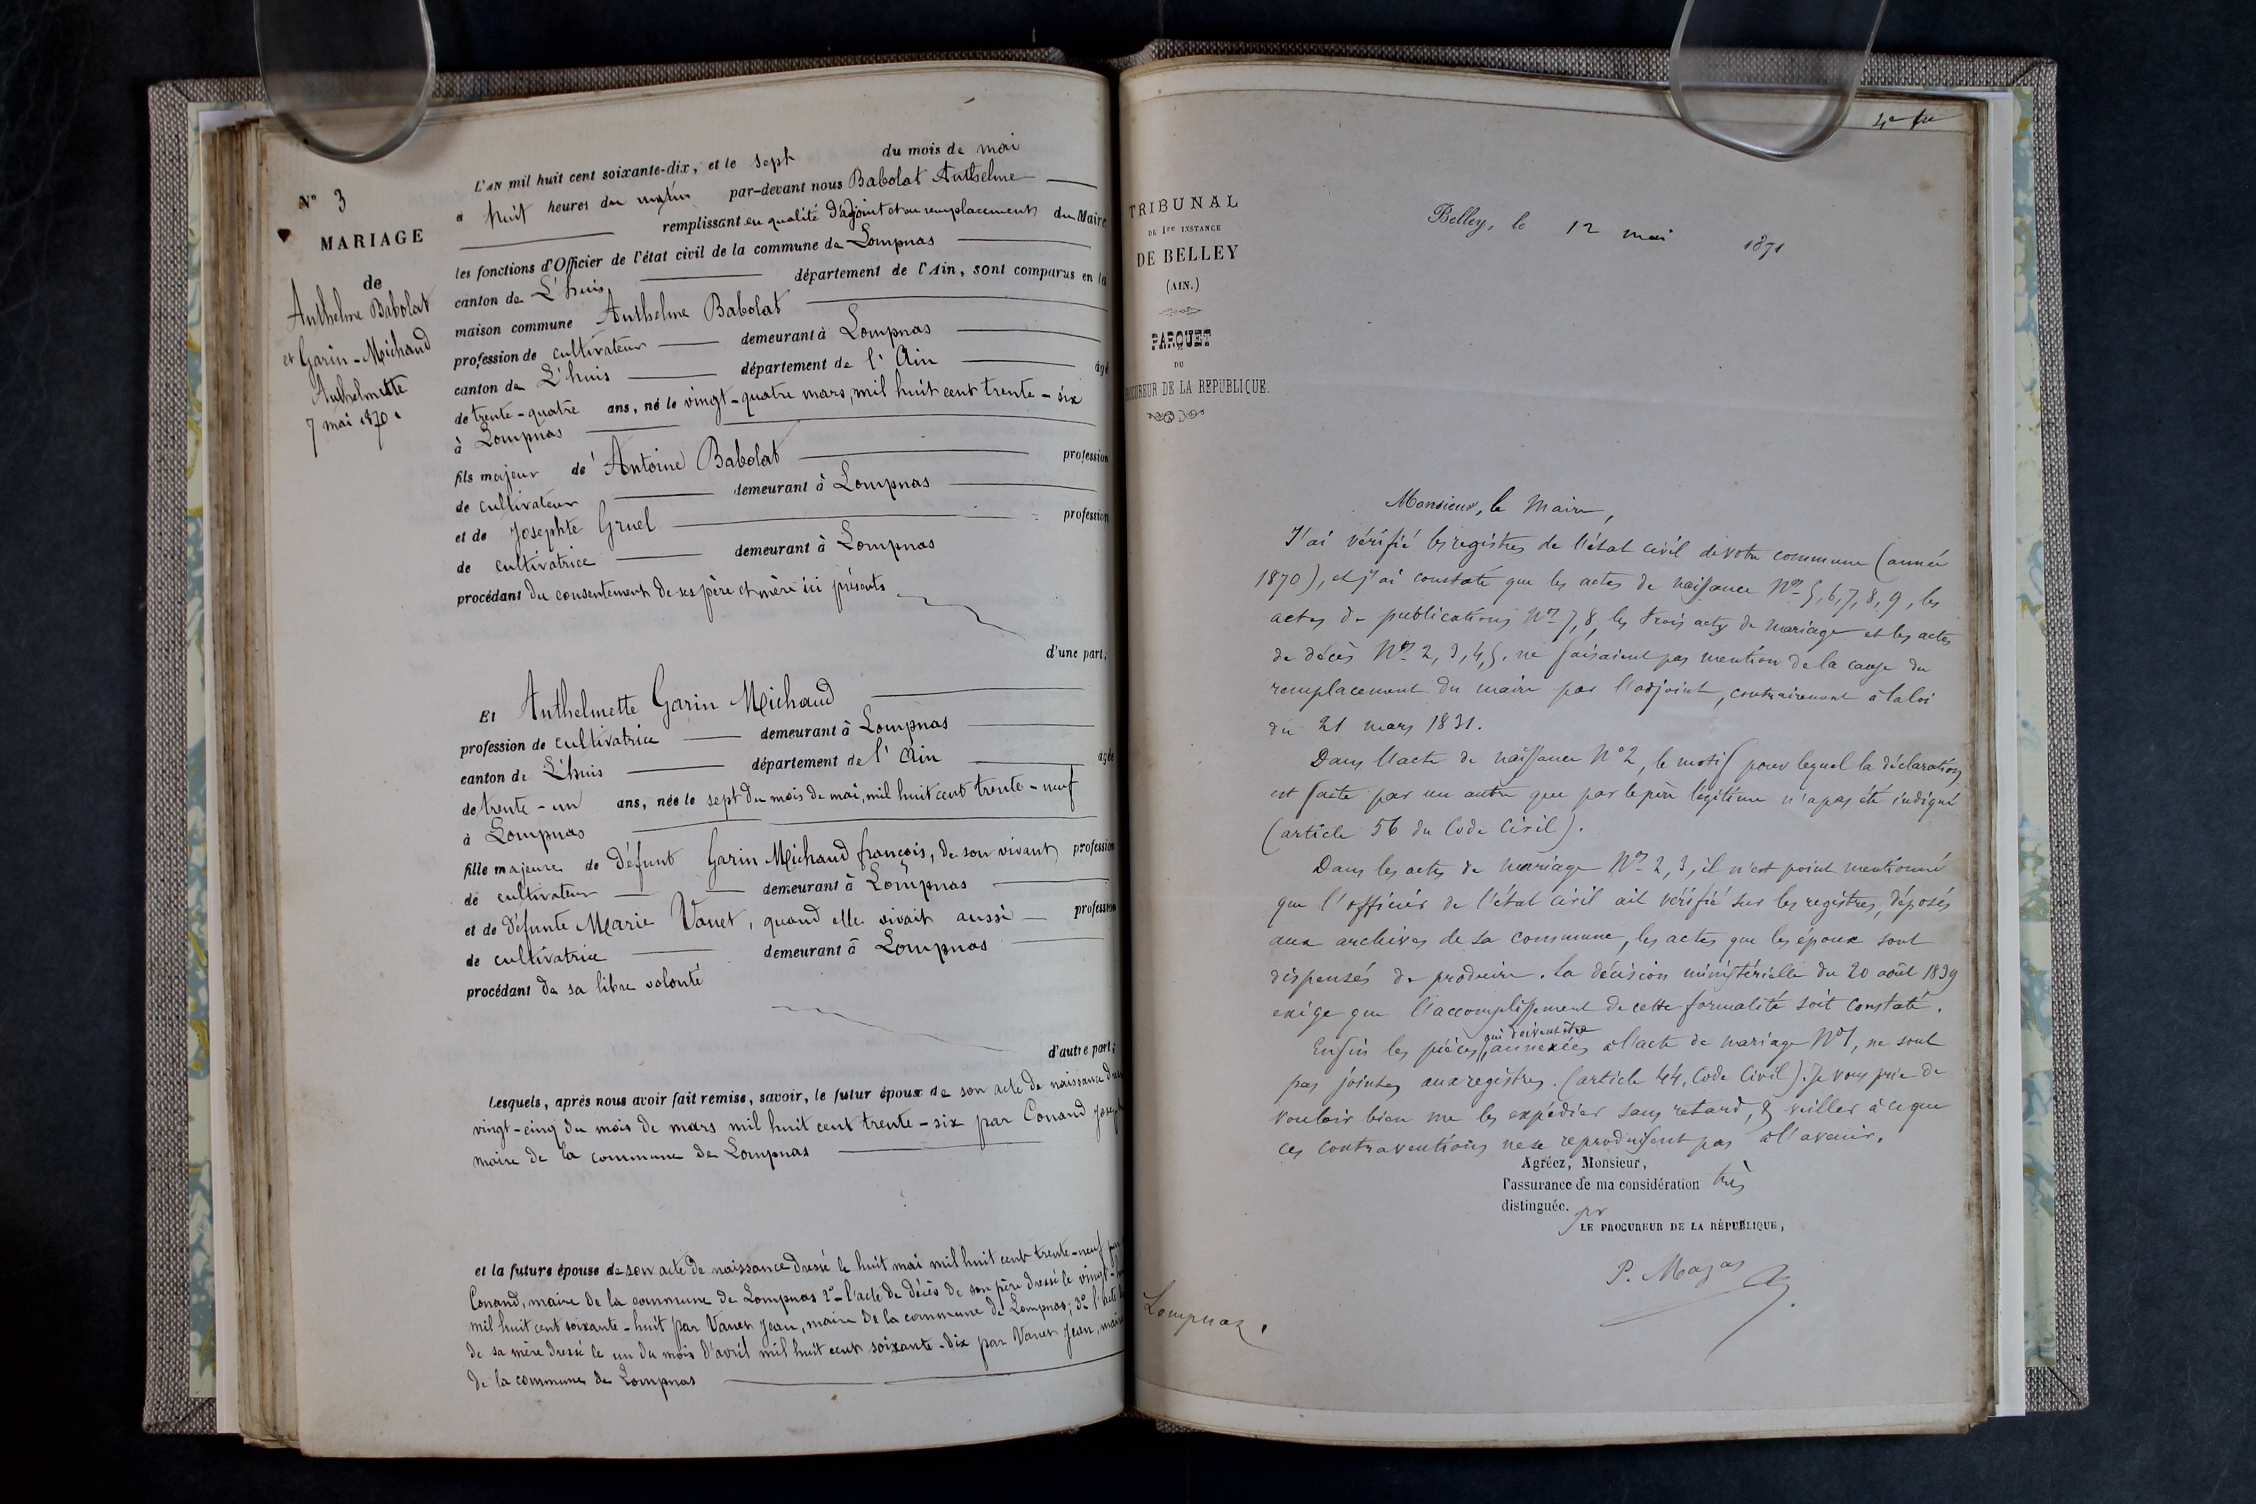 N° 3
MARIAGE
de
Anthelme Babolat
et Garin-Michand
Anthelmette
7 mai 1870.
L'AN mil huit cent soixante-dix, et le sept du mois de mai
a huit heures du matin par-devant nous Babolat Anthelme
remplissant en qualité d'adjoint et en remplacement du Maire
les fonctions d'Officier de l'état civil de la commune de Lompnas
canton de L'huis département de l'Ain, sont comparus en la
maison commune Anthelme Babolat
profession de cultivateur demeurant à Lompnas
canton de L'huis département de l'Ain âgé
de trente-quatre ans, né le vingt-quatre mars, mil huit cent trente-six
à Lompnas
fils majeur de Antoine Babolat profession
de cultivateur demeurant à Lompnas
et de Josephte Gruel profession
de cultivatrice demeurant à Lompnas
procédant du consentement de ses père et mère ici présents
d'une part;
Et Anthelmette Garin Michaud
profession de cultivatrice demeurant à Lompnas
canton de L'huis département de l'Ain âgée
de trente-un ans, née le sept du mois de mai, mil huit cent trente-neuf
à Lompnas
fille majeure de défunt Garin Michaud françois, de son vivant profession
de cultivateur demeurant à Lompnas
et de défunte Marie Vanet, quand elle vivait aussi profession
de cultivatrice demeurant à Lompnas
procédant de sa libre volonté
d'autre part;
Lesquels, après nous avoir fait remise, savoir, le futur époux de son acte de naissance
vingt-cinq du mois de mars mil huit cent trente-six par Conand
maire de la commune de Lompnas
et la future épouse de son acte de naissance dressé le huit mai mil huit cent trente-neuf
Conand, maire de la commune de Lompnas 2° l'acte de décès de son père dressé le
mil huit cent soixante-huit par Vanet Jean, maire de la commune de Lompnas; 3° l'acte
de sa mère dressé le un du mois d'avril mil huit cent soixante-dix par Vanet Jean,
de la commune de Lompnas
TRIBUNAL
DE 1re INSTANCE
DE BELLEY
(AIN.)
PARQUET
DU
PROCUREUR DE LA REPUBLIQUE.
Belley, le 12 mai 1871
Monsieur, le Maire,
J'ai vérifié les registres de l'état civil de votre commune (année
1870), et j'ai constaté que les actes de naissance Nos 5, 6, 7, 8, 9, les
actes de publications Nos 7, 8, les trois actes de mariage et les actes
de décès Nos 2, 3, 4, 5. ne faisaient pas mention de la cause du
remplacement du maire par l'adjoint, contrairement à la loi
du 21 mars 1831.
Dans l'acte de naissance N° 2, le motif pour lequel la déclaration
est faite par un autre que par le père légitime n'a pas été indiqué
(article 56 du Code Civil).
Dans les actes de mariage Nos 2, 3, il n'est point mentionné
que l'officier de l'état civil ait vérifié sur les registres, déposés
aux archives de sa commune, les actes que les époux sont
dispensés de produire. La décision ministérielle du 20 août 1839
exige que l'accomplissement de cette formalité soit constaté.
Enfin les pièces qui doivent être annexées à l'acte de mariage N° 1, ne sont
pas jointes aux registres. (article 44, Code Civil). Je vous prie de
vouloir bien me les expédier sans retard, & veiller à ce que
ces contraventions ne se reproduisent pas à l'avenir.
Agréez, Monsieur,
l'assurance de ma considération très
distinguée.
pr LE PROCUREUR DE LA RÉPUBLIQUE,
Lompnaz.